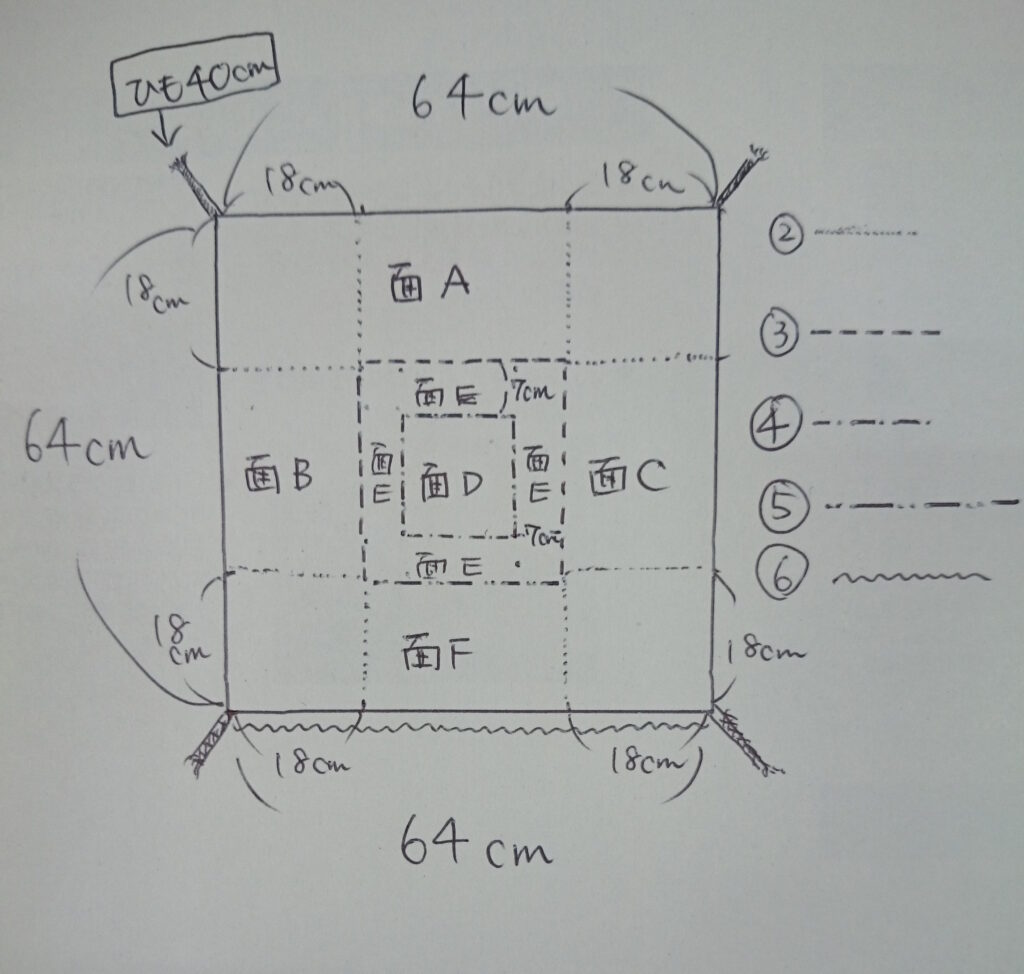 ひも40cm
64cm
18cm
18cm
②
18cm
面A
③
面E
7cm
④
64cm
面B
面E
面D
面E
面C
⑤
7cm
面E
⑥
18cm
面F
18cm
18cm
18cm
64cm